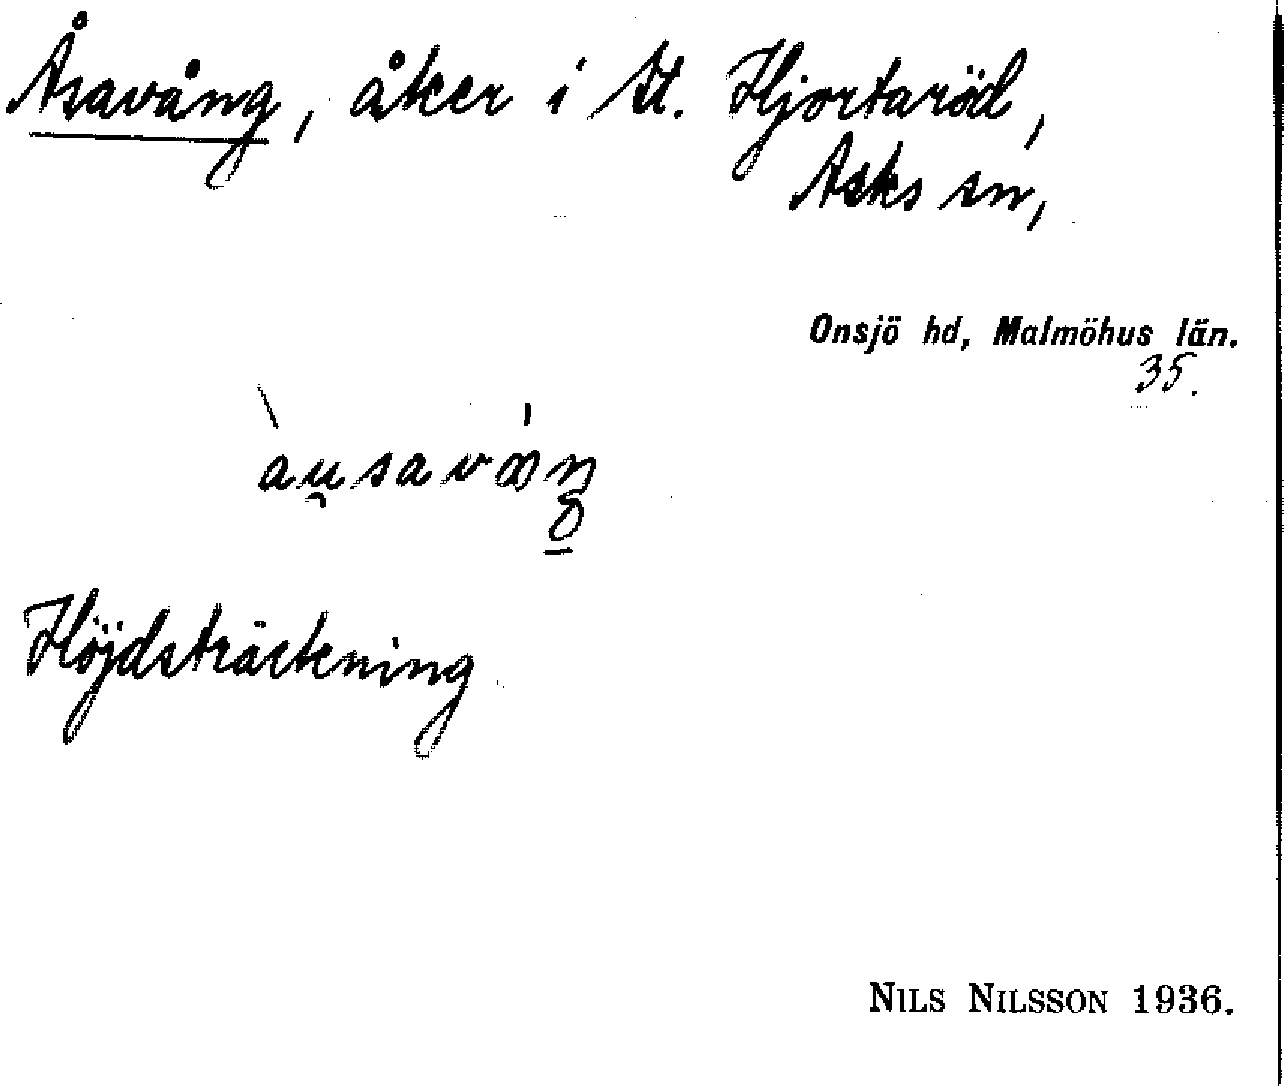 Åsavång, åker i St. Hjortaröd,
Asks sn,
Onsjö hd, Malmöhus län.
35.
Höjdsträckning
NILS NILSSON 1936.